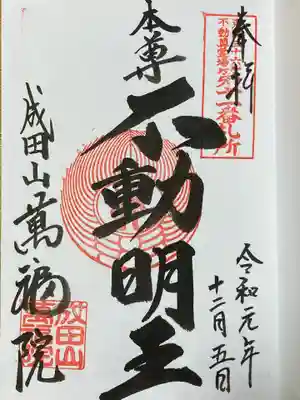 奉拝
不動尊霊場第二十一番札所
令和元年
十二月五日
本尊
不動明王
成田山萬福院
成田山
萬福院